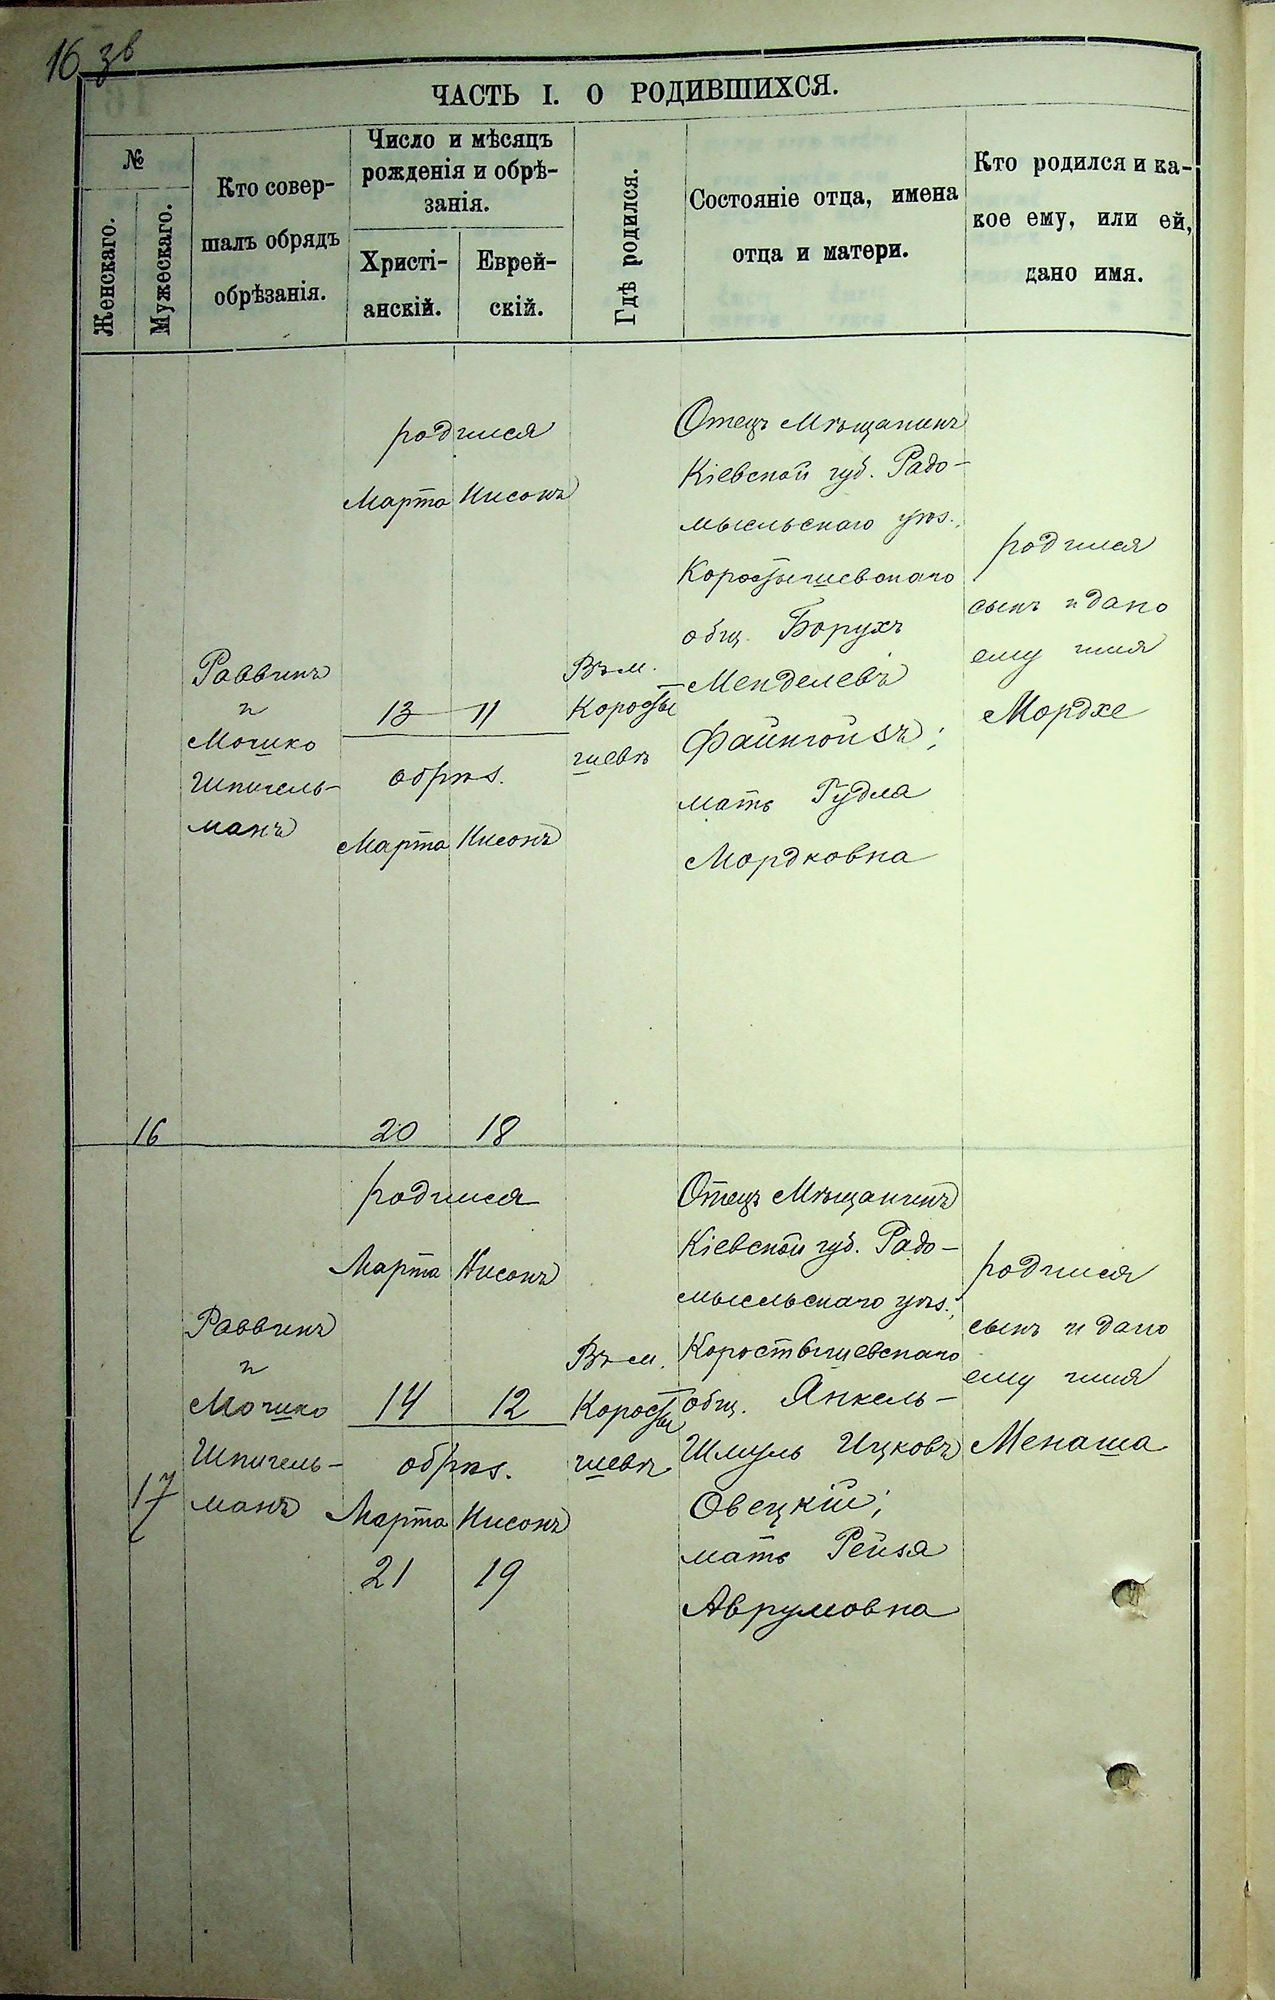 16 зв
ЧАСТЬ I. О РОДИВШИХСЯ.
№
Женскаго.
Мужескаго.
Кто совер-
шалъ обрядъ
обрѣзанія.
Число и мѣсяцъ
рожденія и обрѣ-
занія.
Христі-
анскій.
Еврей-
скій.
Гдѣ родился.
Состояніе отца, имена
отца и матери.
Кто родился и ка-
кое ему, или ей,
дано имя.
16
Раввинъ
и
Мошко
Шпигель-
манъ
родился
Марта Нисонъ
13 11
обрѣз.
Марта Нисонъ
20 18
Въ м.
Коросты
шевѣ
Отецъ Мѣщанинъ
Кіевской губ. Радо-
мысльскаго уѣз.,
Коростышевскаго
общ. Борухъ
Менделевъ
Файнгойзъ;
мать Гудла
Мордковна
родился
сынъ и дано
ему имя
Мордхе
17
Раввинъ
и
Мошко
Шпигель-
манъ
родился
Марта Нисонъ
14 12
обрѣз.
Марта Нисонъ
21 19
Въ м.
Коросты
шевѣ
Отецъ Мѣщанинъ
Кіевской губ. Радо-
мысльскаго уѣз.,
Коростышевскаго
общ. Янкель-
Шмуль Ицковъ
Овецкій;
мать Рейзя
Аврумовна
родился
сынъ и дано
ему имя
Менаша